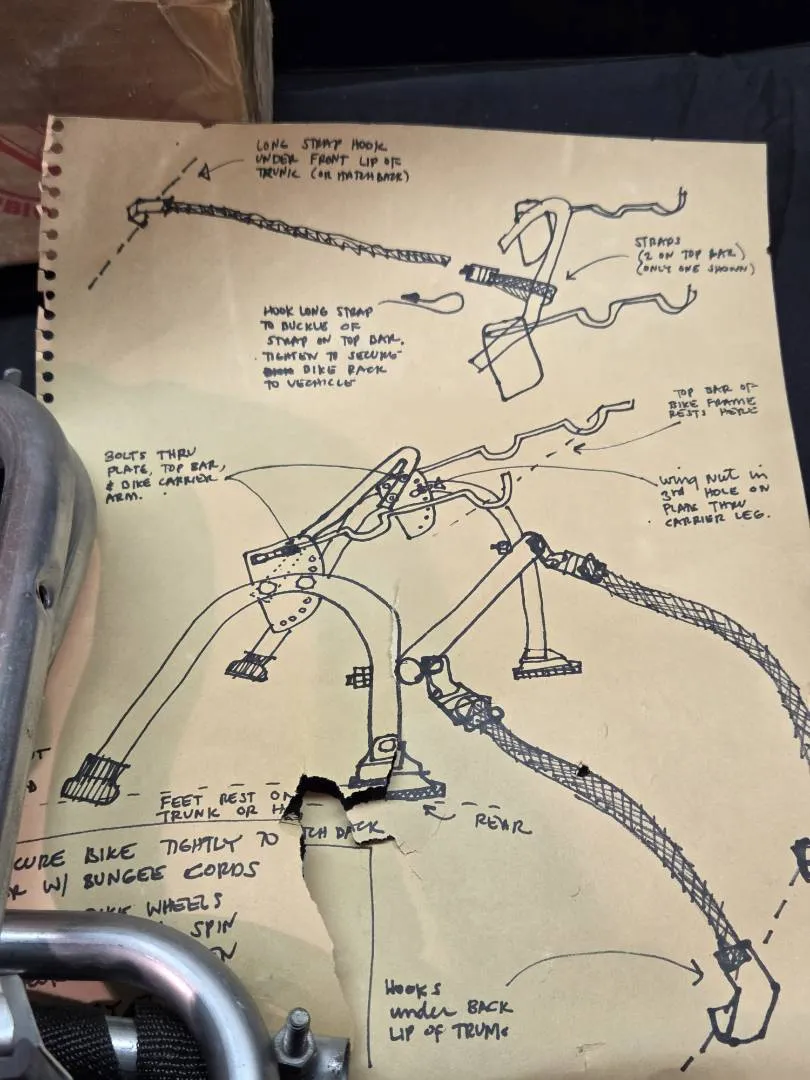 LONG STRAP HOOK
UNDER FRONT LIP OF
TRUNK (OR HATCHBACK)
STRAPS
(2 ON TOP BAR)
(ONLY ONE SHOWN)
HOOK LONG STRAP
TO BUCKLE OF
STRAP ON TOP BAR.
TIGHTEN TO SECURE
BIKE RACK
TO VEHICLE
TOP BAR OF
BIKE FRAME
RESTS HERE
BOLTS THRU
PLATE, TOP BAR,
& BIKE CARRIER
ARM.
wing Nut in
3rd HOLE ON
PLATE THRU
CARRIER LEG.
FEET REST ON
TRUNK OR H
TCH BACK
REAR
CURE BIKE TIGHTLY TO
OR W/ BUNGEE CORDS
BIKE WHEELS
SPIN
HOOKS
under BACK
LIP OF TRUNK